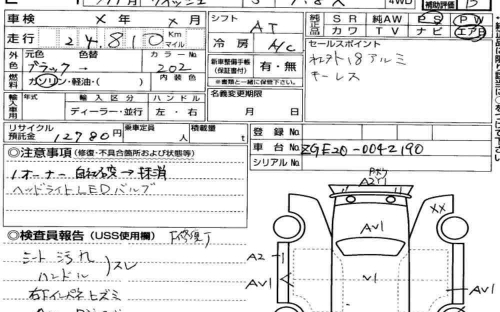 4WD
車検 × 年 × 月
シフト AT
純正品 SR 純AW PS PW
カワ TV ナビ エアB
走行 24,810 Km マイル
冷房 A/C
セールスポイント
社外18アルミ
キーレス
外色 元色 色替 カラーNo
ブラック → 202
内装色
燃料 ガソリン・軽油・( )
新車整備手帳(保証書付) 有・無
※書類と一緒に保管下さい。
名義変更期限
月 日
輸入車用 年式 輸入区分 ハンドル
ディーラー・並行 左・右
リサイクル預託金 12780円
乗車定員 人
積載量 t
登録No.
車台No. ZGE20-0042190
シリアルNo.
◎注意事項(修復・不具合箇所および状態等)
1オーナー 自家 → 抹消
ヘッドライトLEDバルブ
◎検査員報告(USS使用欄)
シート汚れ
ハンドル スレ
右下インパネヒズミ
A2Y1
AV1
××
A2
AV1
V1
AV1